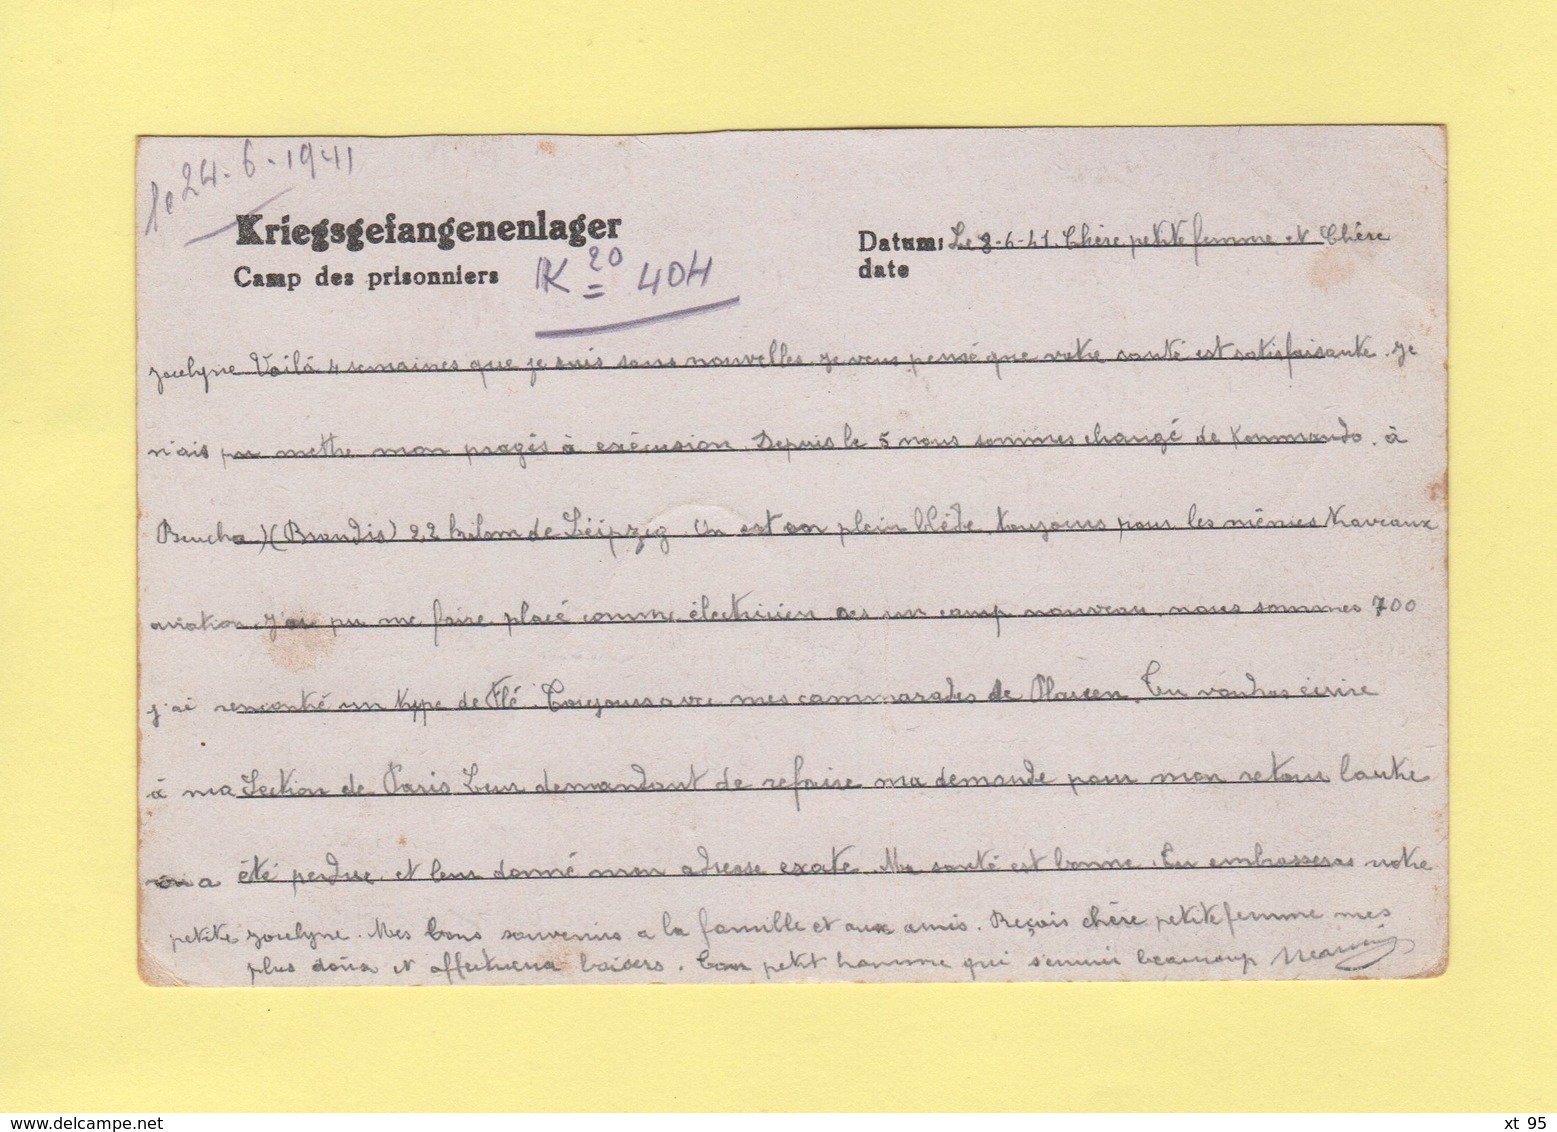 le 24-6-1941
Kriegsgefangenenlager
Camp des prisonniers
K 20 = 404
Datum: Le 8-6-41. Chère petite femme et Chère
date
Jocelyne Voilà 4 semaines que je suis sans nouvelles, je veus pensé que votre santé est satisfaisante. Je
n'ais pu mettre mon progès à exécusion. Depuis le 5 nous sommes changé de Kommando. à
Beucha)(Brandis) 22 kilom de Leipzig On est en plein blède toujours pour les mêmes travaux
aviation. J'ai pu me faire placé comme électricien un camp nouveau, nous sommes 700
j'ai rencontré un type de Flé. Toujours avec mes cammarades de Plauen. Tu voudras écrire
à ma Section de Paris Leur demandant de refaire ma demande pour mon retour lautre
a été perdue, et leur donné mon adresse exate. Ma santé est bonne. Tu embrasseras notre
petite Jocelyne. Mes bons souvenirs a la famille et aux amis. Reçois chère petite femme mes
plus et affectueux baisers. Ton petit homme qui s'ennui beaucoup
xt 95